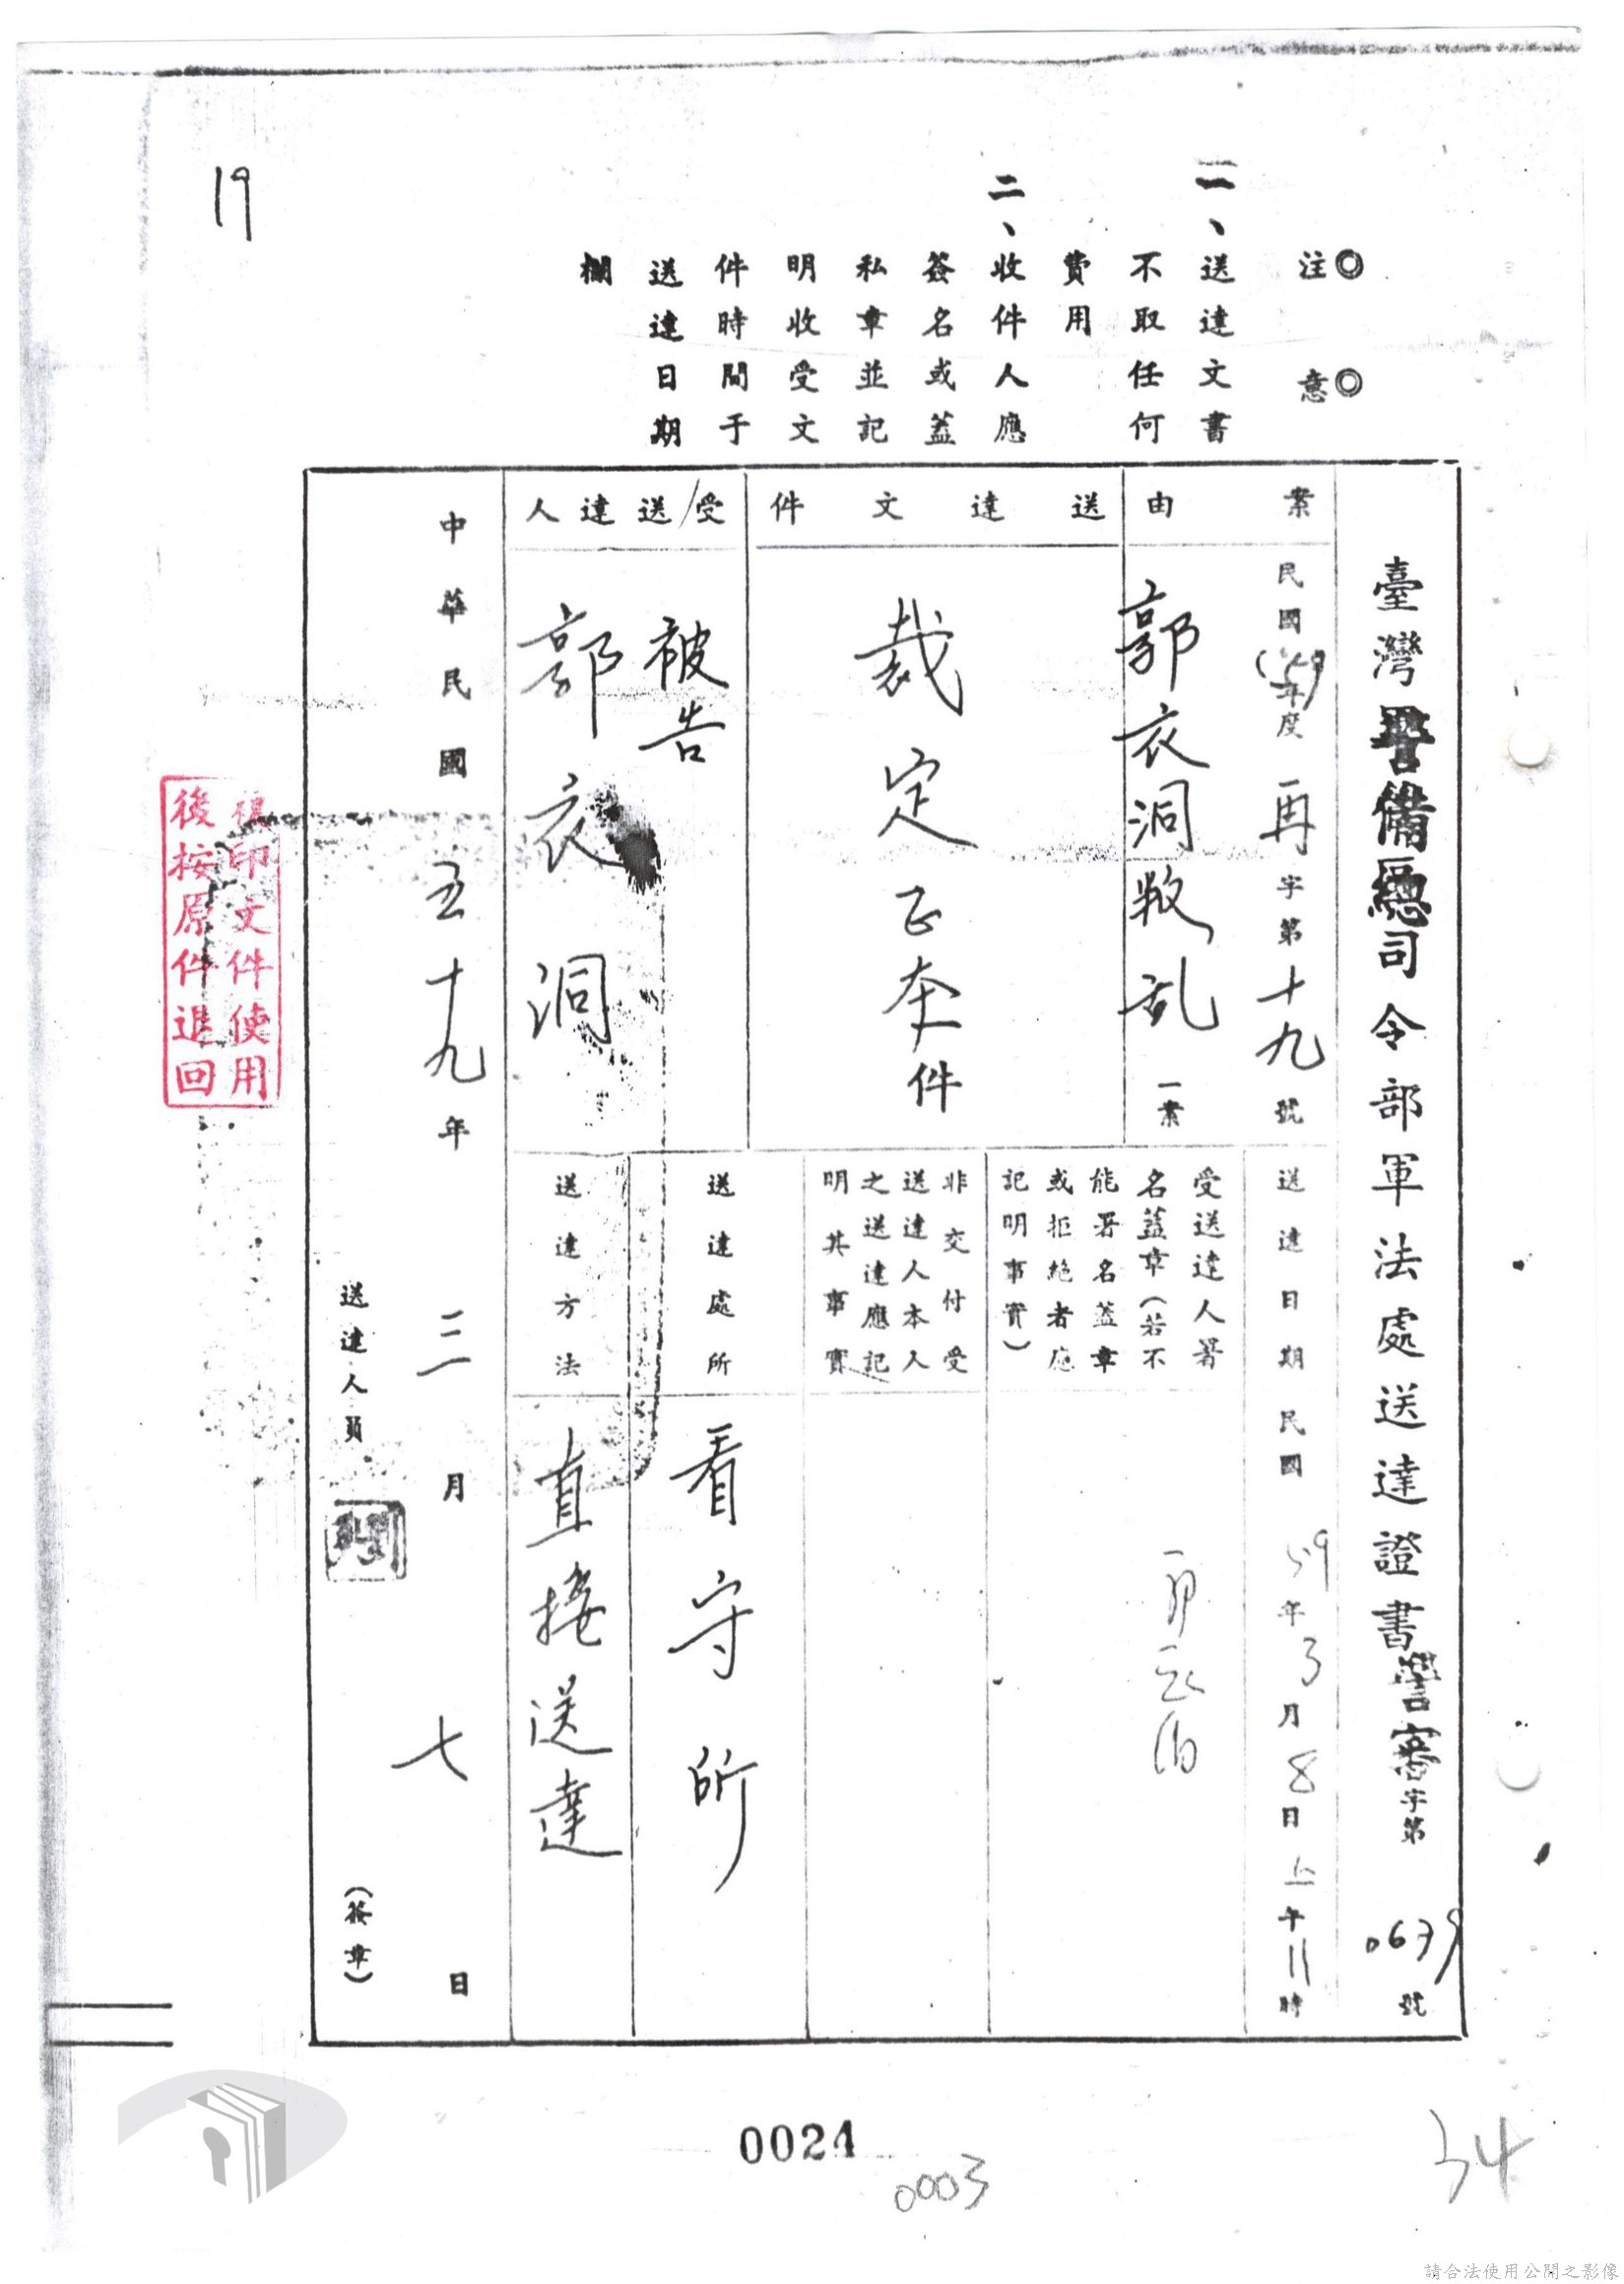 19
◎注意◎
一、送達文書
不取任何
費用
二、收件人應
簽名或蓋
私章並記
明收受文
件時間于
送達日期
欄
臺灣警備總司令部軍法處送達證書警審字第0639號
案由
民國59年度再字第十九號
郭衣洞叛乱一案
送達文件
裁定正本件
受送達人
被告
郭衣洞
送達日期
民國59年3月8日上午11時
受送達人署
名蓋章(若不
能署名蓋章
或拒絕者應
記明事實)
非交付受
送達人本人
之送達應記
明其事實
送達處所
看守所
送達方法
直接送達
中華民國五十九年三月七日
送達人員
(簽章)
複印文件使用
後按原件退回
0024
0003
34
請合法使用公開之影像